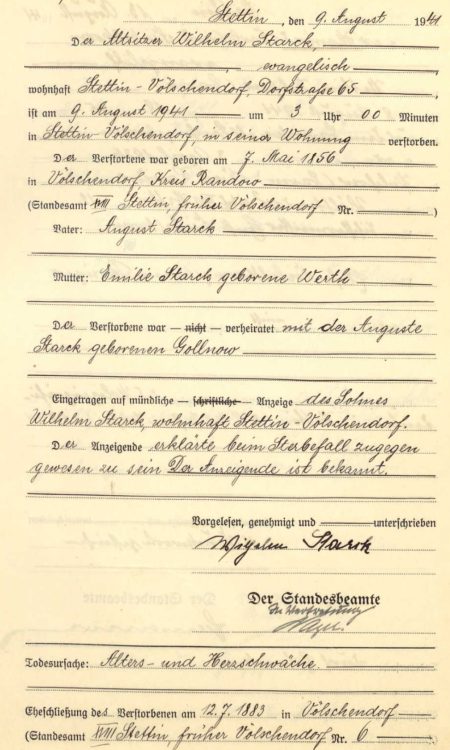 Stettin, den 9. August 1941
Der Altsitzer Wilhelm Starck,
evangelisch
wohnhaft Stettin-Völschendorf, Dorfstraße 65
ist am 9. August 1941 um 3 Uhr 00 Minuten
in Stettin-Völschendorf, in seiner Wohnung verstorben.
Der Verstorbene war geboren am 7. Mai 1856
in Völschendorf Kreis Randow
(Standesamt XVIII Stettin, früher Völschendorf Nr. )
Vater: August Starck
Mutter: Emilie Starck geborene Werth
Der Verstorbene war — nicht — verheiratet mit der Auguste
Starck geborenen Gollnow
Eingetragen auf mündliche — schriftliche — Anzeige des Sohnes
Wilhelm Starck, wohnhaft Stettin-Völschendorf.
Der Anzeigende erklärte beim Sterbefall zugegen
gewesen zu sein. Der Anzeigende ist bekannt.
Vorgelesen, genehmigt und unterschrieben
Wilhelm Starck
Der Standesbeamte
In Vertretung
Todesursache: Alters- und Herzschwäche.
Eheschließung des Verstorbenen am 12.7.1883 in Völschendorf
(Standesamt XVIII Stettin, früher Völschendorf Nr. 6 )